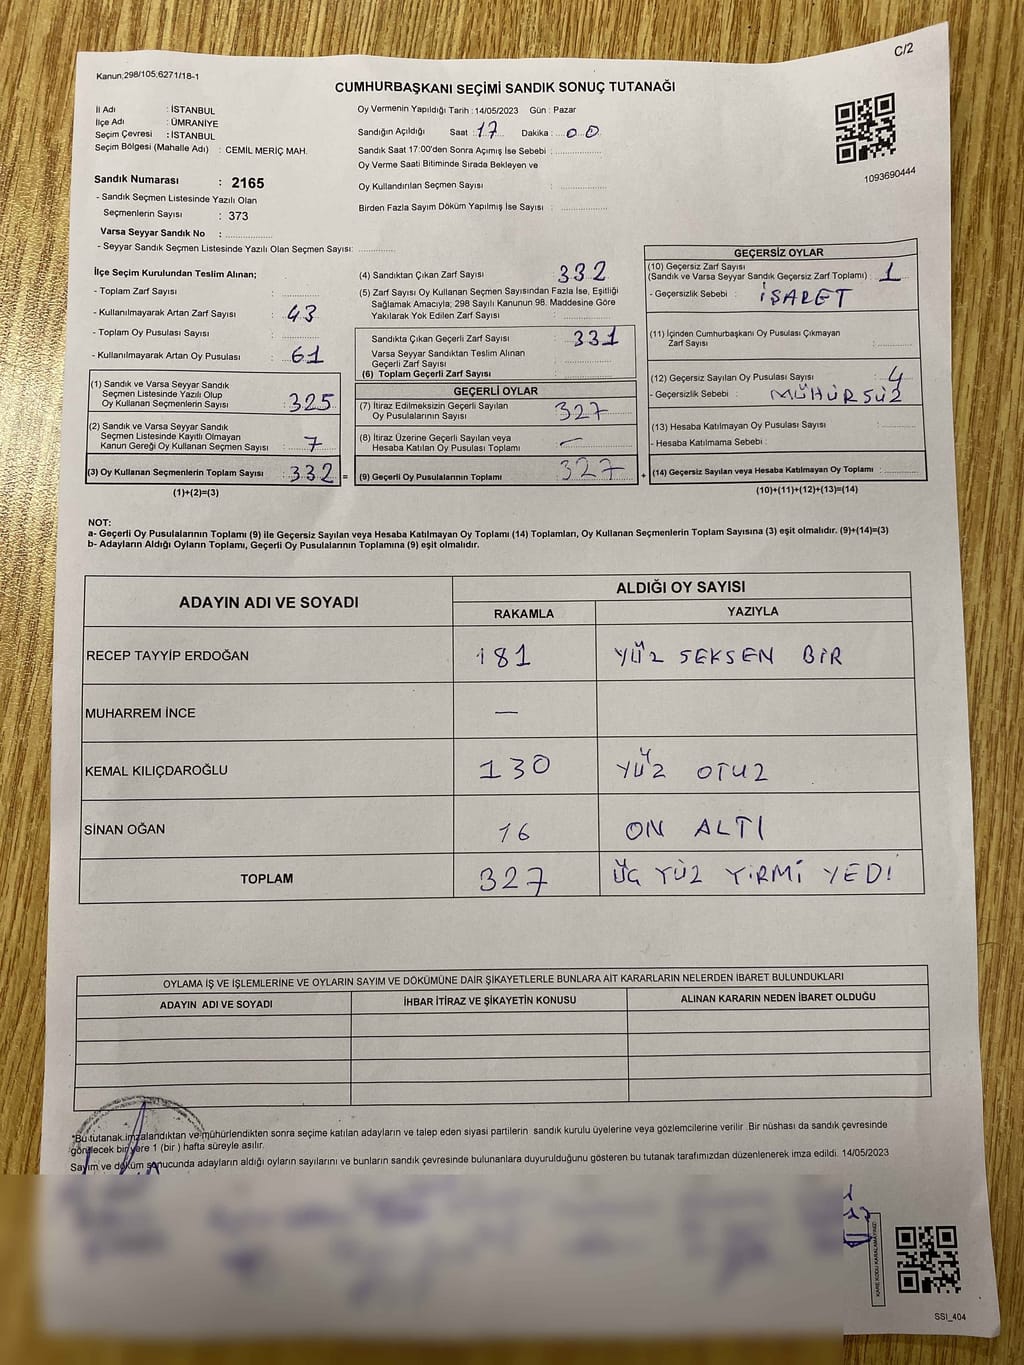 C/2
Kanun;298/105,6271/18-1
CUMHURBAŞKANI SEÇİMİ SANDIK SONUÇ TUTANAĞI
İl Adı : İSTANBUL
İlçe Adı : ÜMRANİYE
Seçim Çevresi : İSTANBUL
Seçim Bölgesi (Mahalle Adı) : CEMİL MERİÇ MAH.
Oy Vermenin Yapıldığı Tarih : 14/05/2023 Gün : Pazar
Sandığın Açıldığı Saat : 17 Dakika : 00
Sandık Saat 17:00'den Sonra Açımış İse Sebebi :
Oy Verme Saati Bitiminde Sırada Bekleyen ve
Oy Kullandırılan Seçmen Sayısı :
Birden Fazla Sayım Döküm Yapılmış İse Sayısı :
1093690444
Sandık Numarası : 2165
- Sandık Seçmen Listesinde Yazılı Olan
Seçmenlerin Sayısı : 373
Varsa Seyyar Sandık No :
- Seyyar Sandık Seçmen Listesinde Yazılı Olan Seçmen Sayısı:
İlçe Seçim Kurulundan Teslim Alınan;
- Toplam Zarf Sayısı :
- Kullanılmayarak Artan Zarf Sayısı : 43
- Toplam Oy Pusulası Sayısı :
- Kullanılmayarak Artan Oy Pusulası : 61
(1) Sandık ve Varsa Seyyar Sandık
Seçmen Listesinde Yazılı Olup
Oy Kullanan Seçmenlerin Sayısı : 325
(2) Sandık ve Varsa Seyyar Sandık
Seçmen Listesinde Kayıtlı Olmayan
Kanun Gereği Oy Kullanan Seçmen Sayısı : 7
(3) Oy Kullanan Seçmenlerin Toplam Sayısı : 332 =
(1)+(2)=(3)
(4) Sandıktan Çıkan Zarf Sayısı : 332
(5) Zarf Sayısı Oy Kullanan Seçmen Sayısından Fazla İse, Eşitliği
Sağlamak Amacıyla; 298 Sayılı Kanunun 98. Maddesine Göre
Yakılarak Yok Edilen Zarf Sayısı :
Sandıkta Çıkan Geçerli Zarf Sayısı : 331
Varsa Seyyar Sandıktan Teslim Alınan
Geçerli Zarf Sayısı :
(6) Toplam Geçerli Zarf Sayısı :
GEÇERLİ OYLAR
(7) İtiraz Edilmeksizin Geçerli Sayılan
Oy Pusulalarının Sayısı : 327
(8) İtiraz Üzerine Geçerli Sayılan veya
Hesaba Katılan Oy Pusulaları Toplamı : —
(9) Geçerli Oy Pusulalarının Toplamı : 327 +
GEÇERSİZ OYLAR
(10) Geçersiz Zarf Sayısı
(Sandık ve Varsa Seyyar Sandık Geçersiz Zarf Toplamı) : 1
- Geçersizlik Sebebi : İŞARET
(11) İçinden Cumhurbaşkanı Oy Pusulası Çıkmayan
Zarf Sayısı :
(12) Geçersiz Sayılan Oy Pusulası Sayısı : 4
- Geçersizlik Sebebi : MÜHÜRSÜZ
(13) Hesaba Katılmayan Oy Pusulası Sayısı :
- Hesaba Katılmama Sebebi :
(14) Geçersiz Sayılan veya Hesaba Katılmayan Oy Toplamı :
(10)+(11)+(12)+(13)=(14)
NOT:
a- Geçerli Oy Pusulalarının Toplamı (9) ile Geçersiz Sayılan veya Hesaba Katılmayan Oy Toplamı (14) Toplamları, Oy Kullanan Seçmenlerin Toplam Sayısına (3) eşit olmalıdır. (9)+(14)=(3)
b- Adayların Aldığı Oyların Toplamı, Geçerli Oy Pusulalarının Toplamına (9) eşit olmalıdır.
ADAYIN ADI VE SOYADI ALDIĞI OY SAYISI
RAKAMLA YAZIYLA
RECEP TAYYİP ERDOĞAN 181 YÜZ SEKSEN BİR
MUHARREM İNCE —
KEMAL KILIÇDAROĞLU 130 YÜZ OTUZ
SİNAN OĞAN 16 ON ALTI
TOPLAM 327 ÜÇ YÜZ YİRMİ YEDİ
OYLAMA İŞ VE İŞLEMLERİNE VE OYLARIN SAYIM VE DÖKÜMÜNE DAİR ŞİKAYETLERLE BUNLARA AİT KARARLARIN NELERDEN İBARET BULUNDUKLARI
ADAYIN ADI VE SOYADI İHBAR İTİRAZ VE ŞİKAYETİN KONUSU ALINAN KARARIN NEDEN İBARET OLDUĞU
*Bu tutanak imzalandıktan ve mühürlendikten sonra seçime katılan adayların ve talep eden siyasi partilerin sandık kurulu üyelerine veya gözlemcilerine verilir. Bir nüshası da sandık çevresinde
görülecek bir yere 1 (bir) hafta süreyle asılır.
Sayım ve döküm sonucunda adayların aldığı oyların sayılarını ve bunların sandık çevresinde bulunanlara duyurulduğunu gösteren bu tutanak tarafımızdan düzenlenerek imza edildi. 14/05/2023
SSI_404